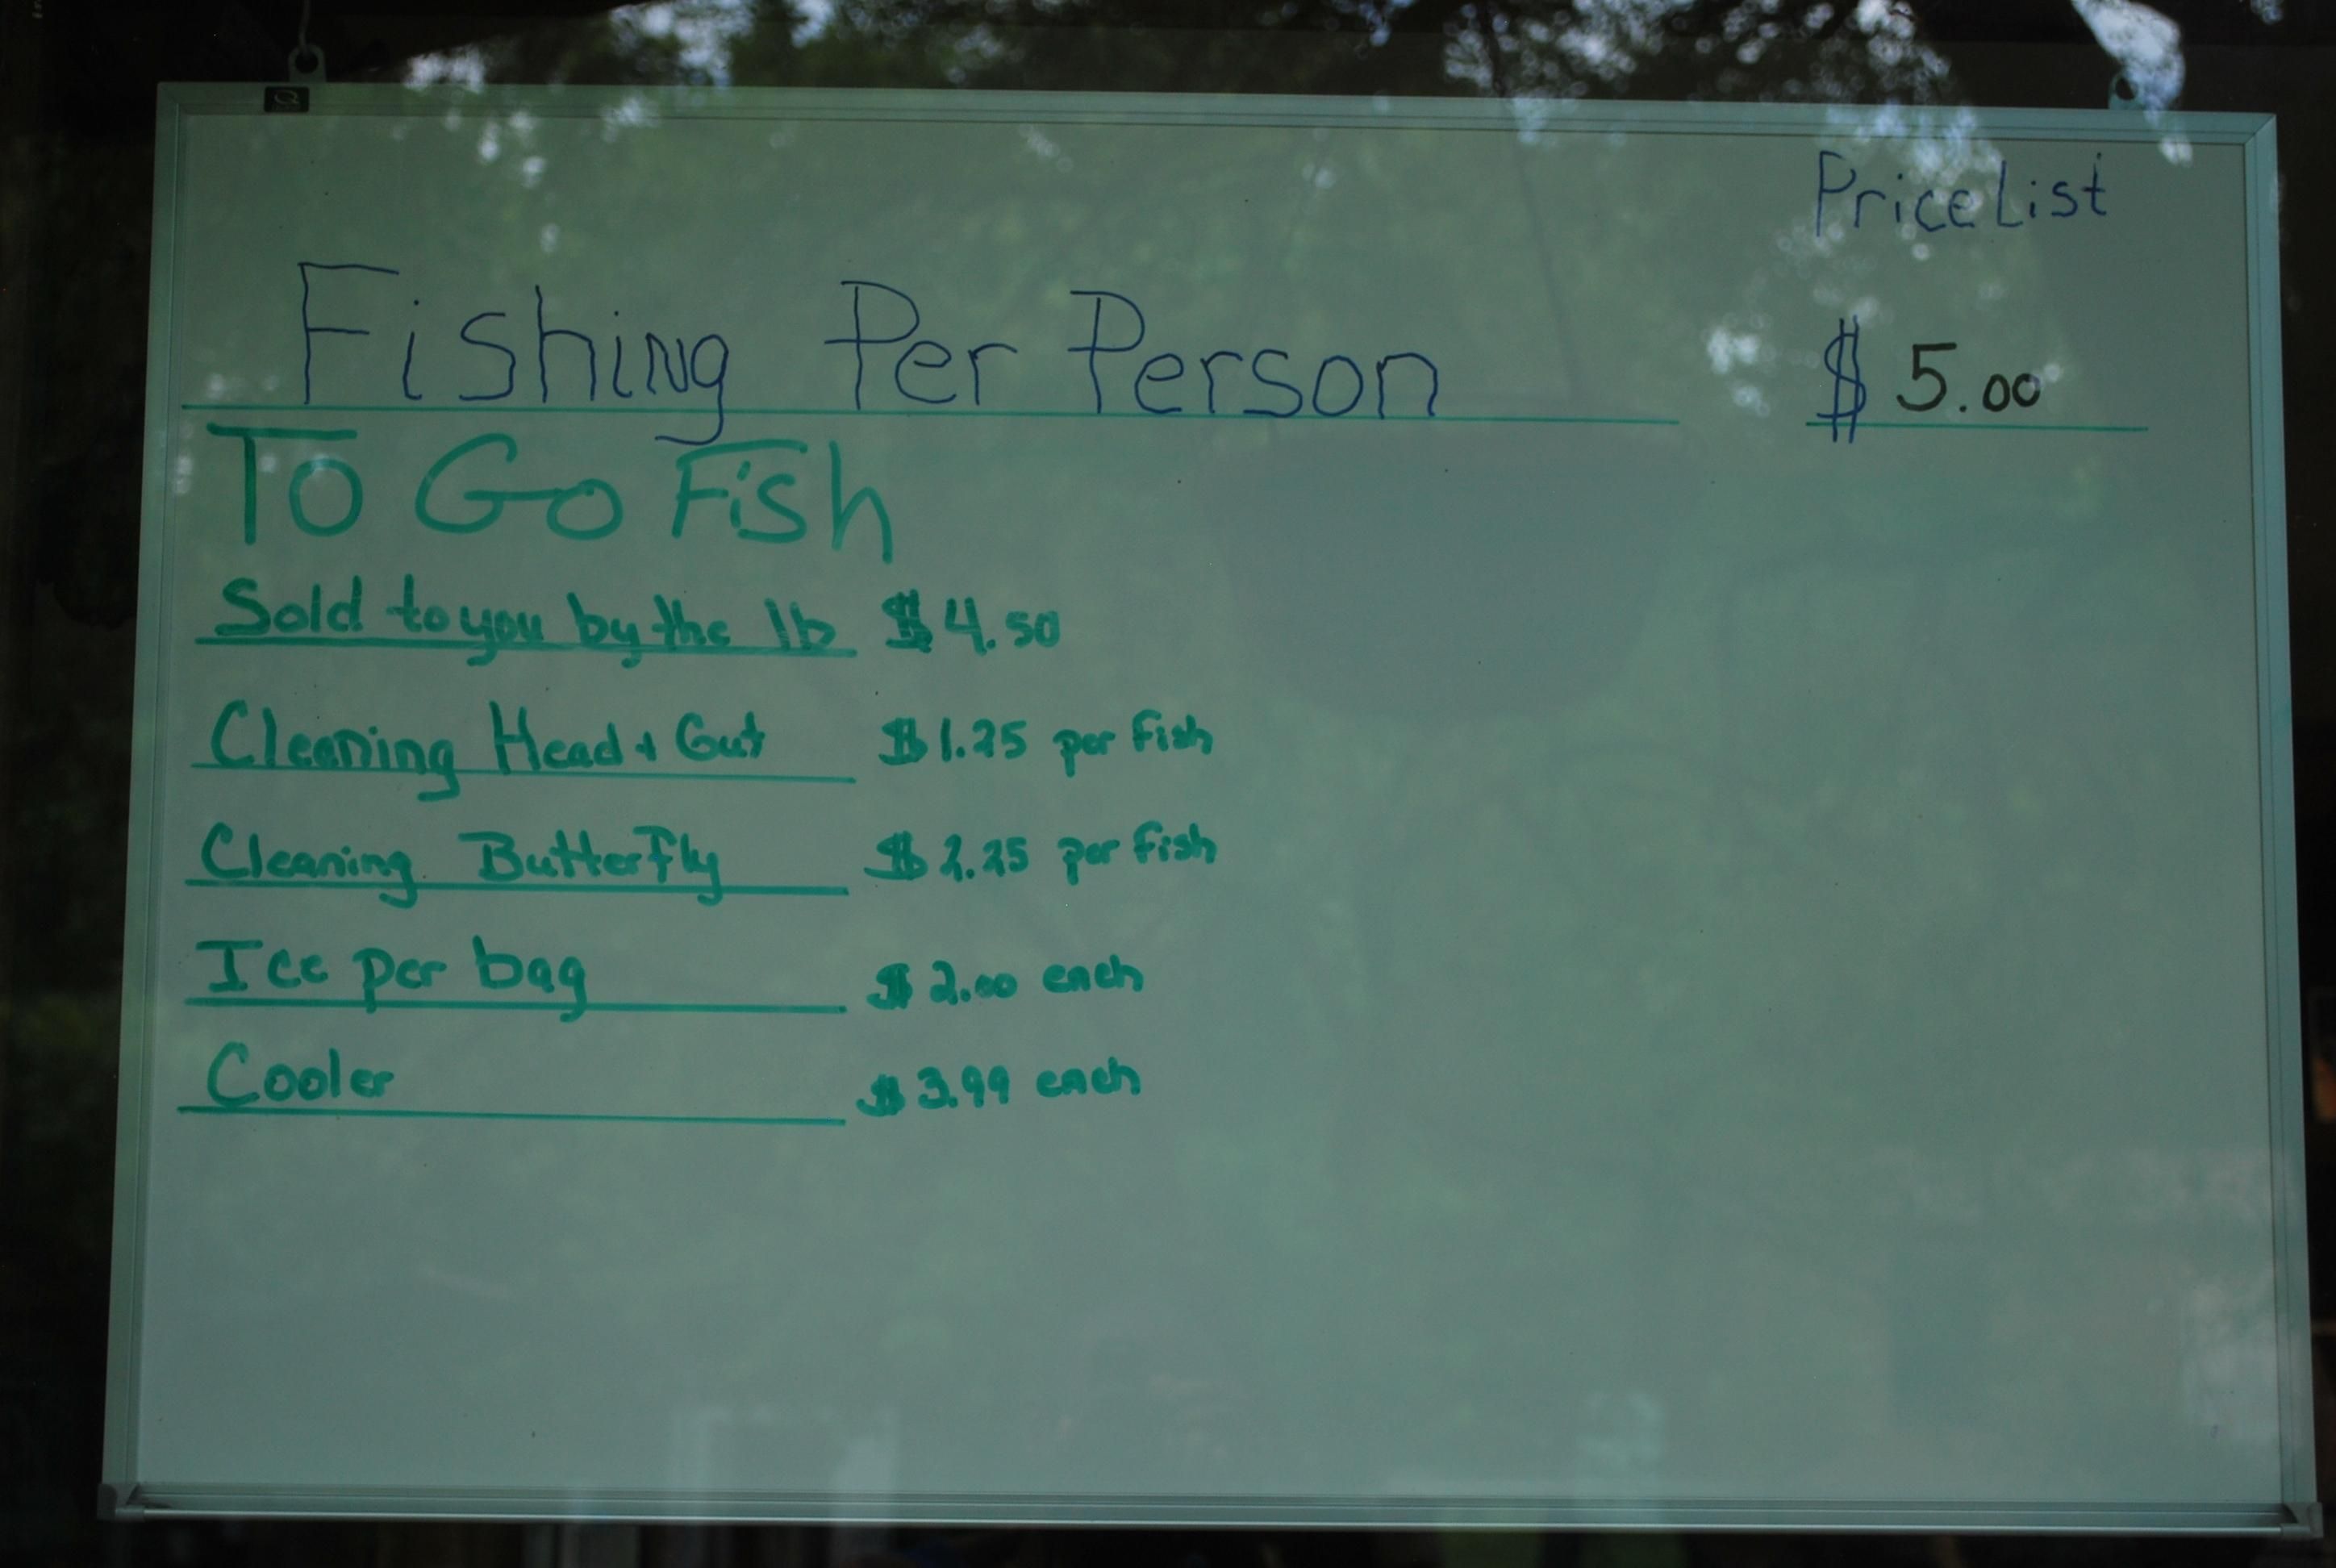 Price List
Fishing Per Person $ 5.00
To Go Fish
Sold to you by the lb $4.50
Cleaning Head + Gut $1.25 per fish
Cleaning Butterfly $2.25 per fish
Ice per bag $2.00 each
Cooler $3.99 each